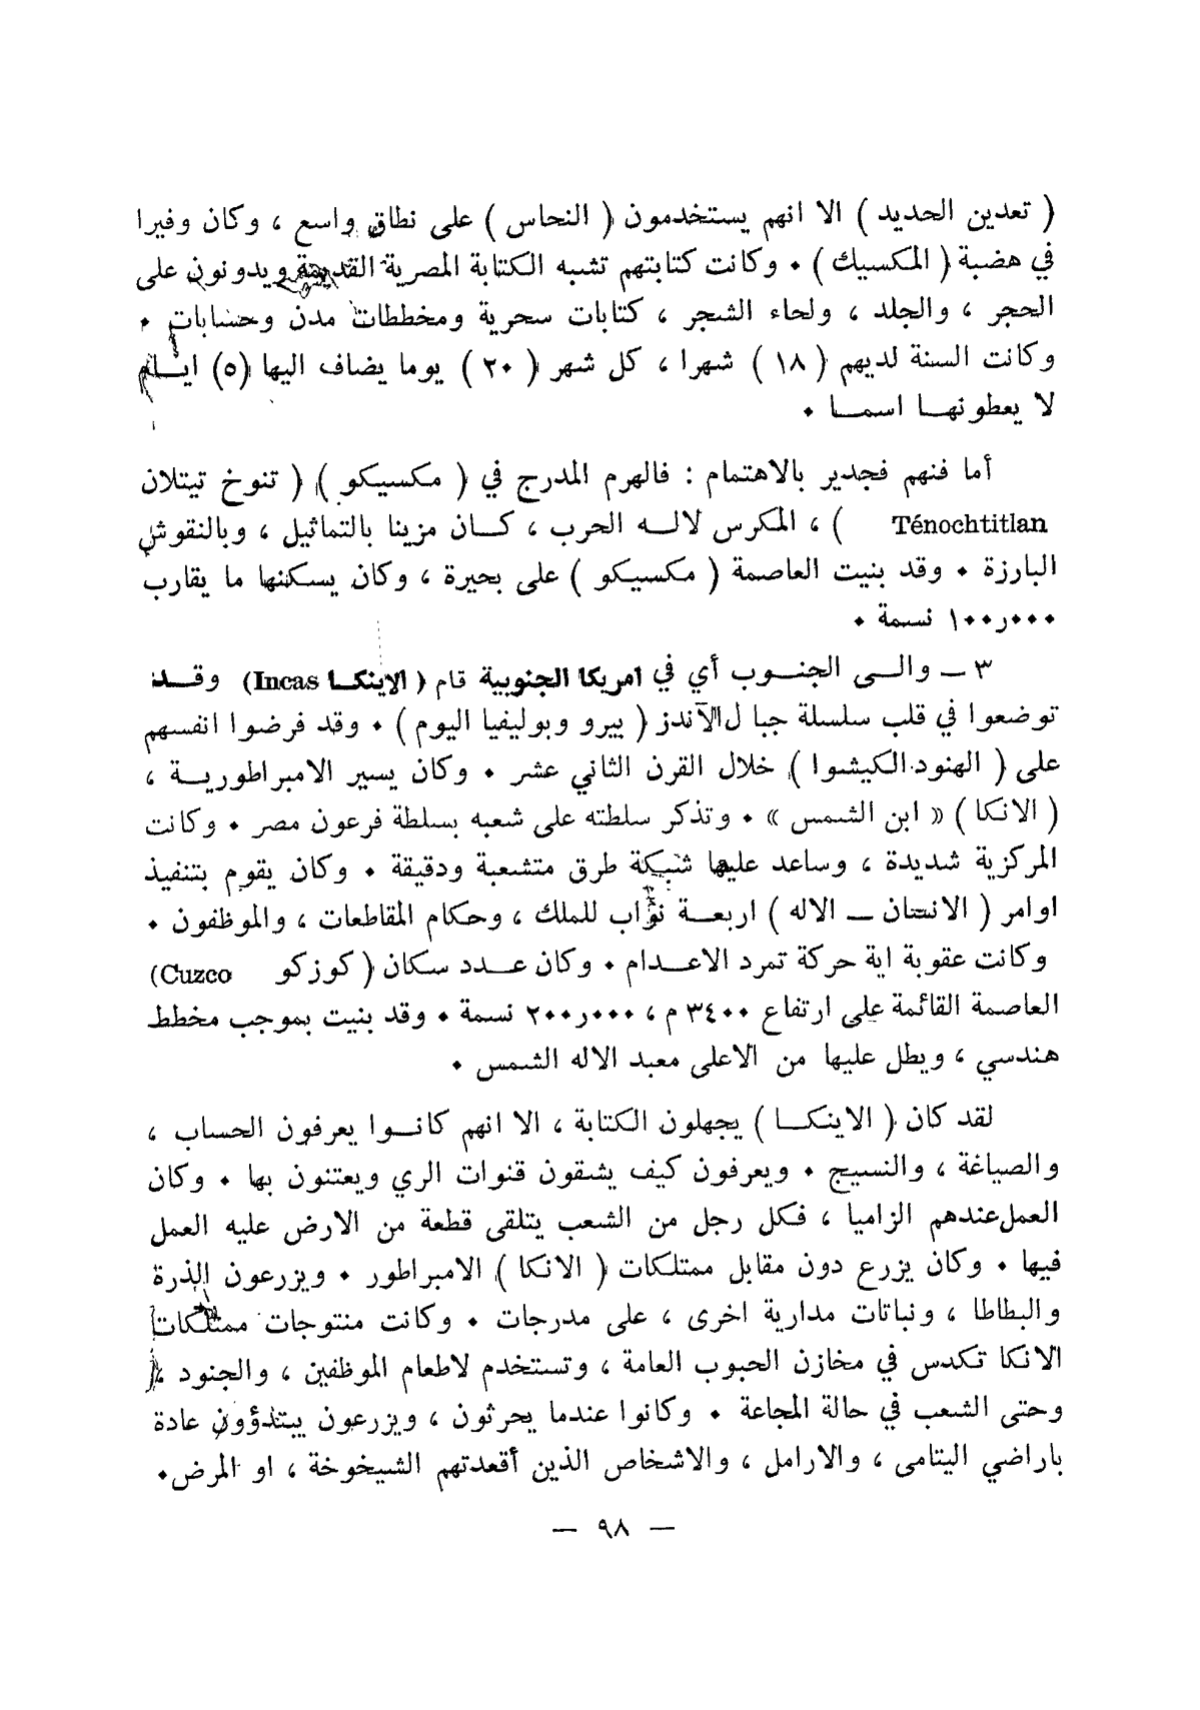 ( تعدين الحديد ) الا انهم يستخدمون ( النحاس ) على نطاق واسع ، وكان وفيرا
في هضبة ( المكسيك ) ٠ وكانت كتابتهم تشبه الكتابة المصرية القديمة ويدونون على
الحجر ، والجلد ، ولحاء الشجر ، كتابات سحرية ومخططات مدن وحسابات ٠
وكانت السنة لديهم ( ١٨ ) شهرا ، كل شهر ( ٢٠ ) يوما يضاف اليها (٥) ايــام
لا يعطونهــا اسمــا ٠
أما فنهم فجدير بالاهتمام : فالهرم المدرج في ( مكسيكو ) ( تنوخ تيتلان
Ténochtitlan ) ، المكرس لالــه الحرب ، كــان مزينا بالتماثيل ، وبالنقوش
البارزة ٠ وقد بنيت العاصمة ( مكسيكو ) على بحيرة ، وكان يسكنها ما يقارب
١٠٠ر٠٠٠ نسمة ٠
٣ ــ والــى الجنــوب أي في امريكا الجنوبية قام ( الاينكــا Incas) وقــد
توضعوا في قلب سلسلة جبا ل الآندز ( بيرو وبوليفيا اليوم ) ٠ وقد فرضوا انفسهم
على ( الهنود الكيشوا ) خلال القرن الثاني عشر ٠ وكان يسير الامبراطوريــة ،
( الانكا ) « ابن الشمس » ٠ وتذكر سلطته على شعبه بسلطة فرعون مصر ٠ وكانت
المركزية شديدة ، وساعد عليها شبكة طرق متشعبة ودقيقة ٠ وكان يقوم بتنفيذ
اوامر ( الانسان ــ الاله ) اربعــة نواب للملك ، وحكام المقاطعات ، والموظفون ٠
وكانت عقوبة اية حركة تمرد الاعــدام ٠ وكان عــدد سكان ( كوزكو Cuzco)
العاصمة القائمة على ارتفاع ٣٤٠٠ م ، ٢٠٠ر٠٠٠ نسمة ٠ وقد بنيت بموجب مخطط
هندسي ، ويطل عليها من الاعلى معبد الاله الشمس ٠
لقد كان ( الاينكــا ) يجهلون الكتابة ، الا انهم كانــوا يعرفون الحساب ،
والصياغة ، والنسيج ٠ ويعرفون كيف يشقون قنوات الري ويعتنون بها ٠ وكان
العمل عندهم الزاميا ، فكل رجل من الشعب يتلقى قطعة من الارض عليه العمل
فيها ٠ وكان يزرع دون مقابل ممتلكات ( الانكا ) الامبراطور ٠ ويزرعون الذرة
والبطاطا ، ونباتات مدارية اخرى ، على مدرجات ٠ وكانت منتوجات ممتلكات
الانكا تكدس في مخازن الحبوب العامة ، وتستخدم لاطعام الموظفين ، والجنود ،
وحتى الشعب في حالة المجاعة ٠ وكانوا عندما يحرثون ، ويزرعون يبتدؤون عادة
باراضي اليتامى ، والارامل ، والاشخاص الذين أقعدتهم الشيخوخة ، او المرض٠
— ٩٨ —